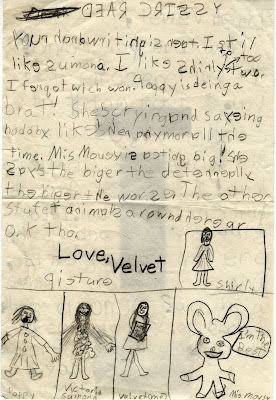 YSSIRC RAED
Your handwriting is neat. I still
like zumona. I like shirly too two.
I forgot wich won. Poppy is being a
brat! She crying and saying
nodody likes her anymor all the
time. Mis Mousy is acting big! She
says the biger the
the biger the worse. The other
stufet animals around here ar
o.k tho.
Love, Velvet
qisture
shirly
poppy
victoria
samona
velvet
I'm the
Best
Mis Mousy